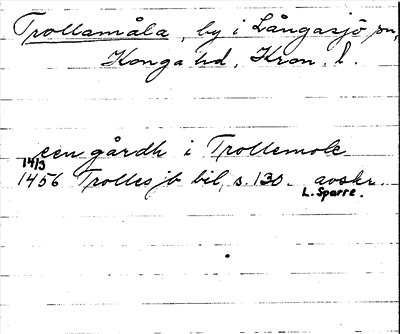 Trollamåla, by i Långasjö sn,
Konga hd, Kron. l.
een gårdh i Trollemole
14/3
1456 Trolles jb bil, s. 130. avskr.
L. Sparre.